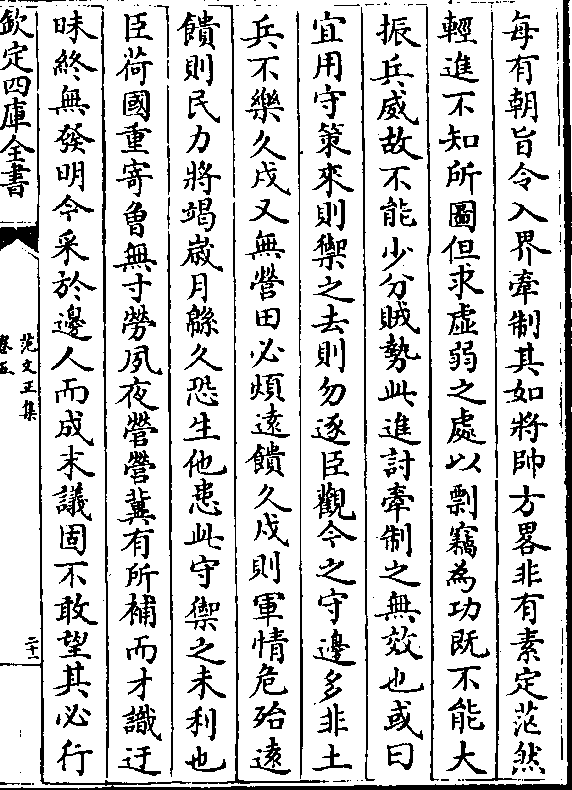 每有朝旨令入界牽制其如將帥方畧非有素定茫然
輕進不知所圖但求虛弱之處以剽竊為功既不能大
振兵威故不能少分賊勢此進討牽制之無效也或曰
宜用守策來則禦之去則勿逐臣觀今之守邊多非土
兵不樂久戍又無營田必煩遠饋久戍則軍情危殆遠
饋則民力將竭歲月緜久恐生他患此守禦之未利也
臣荷國重寄曾無寸勞夙夜營營冀有所補而才識迂
昧終無發明今采於邊人而成末議固不敢望其必行
欽定四庫全書
范文正集
卷五
二十一